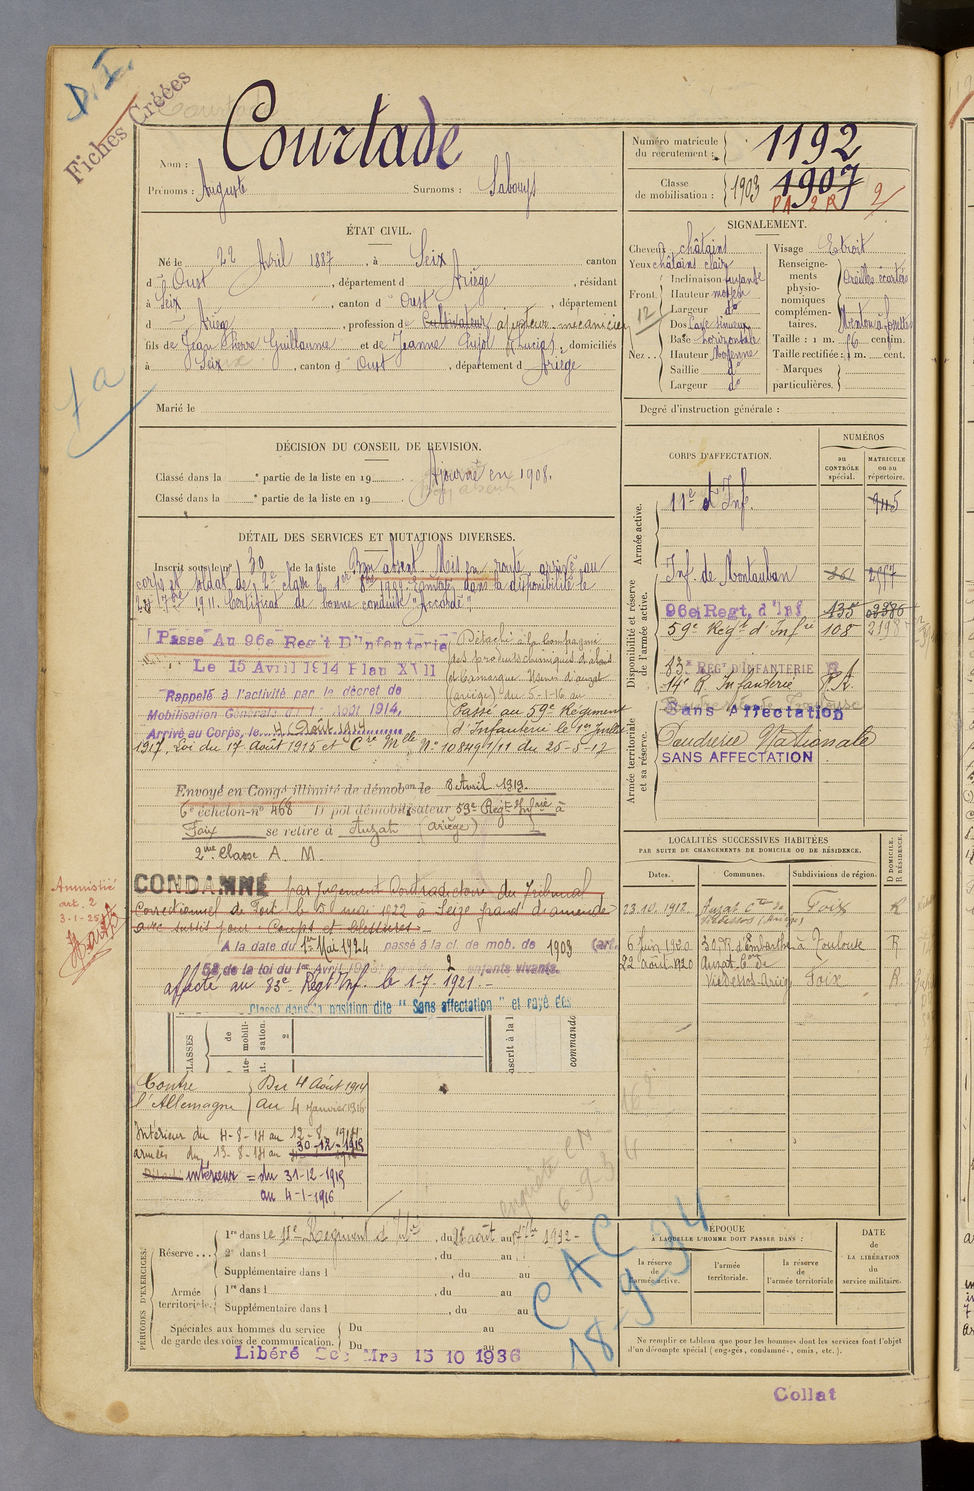 D. I.
Fiches Créées
Nom : Courtade
Prénoms : Auguste Surnoms :
Numéro matricule du recrutement : 1192
Classe de mobilisation : 1903 1907
PA 2 R 2
ÉTAT CIVIL.
Né le 22 Avril 1887, à Seix canton
d'Oust, département d Ariège, résidant
à Seix, canton d' Oust, département
d Ariège, profession de Cultivateur ajusteur-mécanicien
fils de Jean Pierre Guillaume et de Jeanne Pujol (Lucie), domiciliés
à Seix, canton d' Oust, département d' Ariège
Marié le
SIGNALEMENT.
Cheveux châtains
Yeux châtains clairs
Front. Inclinaison fuyante
Hauteur moyen
Largeur do
Nez Dos Cave sinueux
Base horizontale
Hauteur Moyenne
Saillie do
Largeur do
12
Visage Etroit
Renseignements physionomiques complémentaires. Oreilles écartées
Menton à fossette
Taille : 1 m. 56 centim.
Taille rectifiée : 1 m. cent.
Marques particulières.
Degré d'instruction générale :
DÉCISION DU CONSEIL DE REVISION.
Classé dans la e partie de la liste en 19 . Ajourné en 1908.
Classé dans la e partie de la liste en 19 . Bon absent
DÉTAIL DES SERVICES ET MUTATIONS DIVERSES.
Inscrit sous le no 130 de la liste Bon absent. Mis en route, arrivé au
corps et soldat de 2e classe le 1er 8bre 1909. Envoyé dans la disponibilité le
1911. Certificat de bonne conduite "Accordé"
Passé Au 96e Reg't D'Infanterie
Le 15 Avril 1914 Plan XVII
Rappelé à l'activité par le décret de
Mobilisation Générale du 1 Août 1914,
Arrivé au Corps, le 4 Août 1914
Détaché à la Compagnie
des produits chimiques d'Alais
et Camargue. Usines d'Auzat
(Ariège) du 5-1-16 au
Passé au 59e Régiment
d'Infanterie le 1er Juillet
1917, Loi du 17 Août 1915 et Cre Mlle No 10849 1/11 du 25-5-17
Envoyé en Congé illimité de démobon le 8 Avril 1919.
6e échelon-no 468 Dépôt démobilisateur 59e Régt Infrie à
Foix se retire à Auzat (Ariège)
2me Classe A. M.
Amnistié
art. 2
3-1-25
CONDAMNÉ par Jugement Contradictoire du Tribunal
Correctionnel de Foix le 5 mai 1922 à Seize francs d'amende
avec sursis pour : Coups et blessures
A la date du 1er Mai 1924 passé à la cl. de mob. de 1903 (art.
58 de la loi du 1er Avril 1923: 2 enfants vivants.
affecté au 83e Régt Inf. le 1-7-1921.-
Classé dans la position dite "Sans affectation" et rayé des
Contre l'Allemagne
Du 4 Août 1914
au 4 Janvier 1916
Intérieur du 4-8-14 au 12-8-1914
armées du 13-8-14 au 30-12-1915
intérieur = du 31-12-1915
au 4-1-1916
CORPS D'AFFECTATION.
NUMÉROS
au CONTRÔLE spécial.
MATRICULE ou au répertoire.
Armée active.
11e d'Inf.
Disponibilité et réserve de l'armée active.
Inf. de Montauban
96e Regt. d'Inf 135
59e Régt d'Infrie 108
83e REGt D'INFANTERIE R
14e R. Infanterie R.
Armée territoriale et sa réserve.
Sans Affectation
Poudrerie Nationale
SANS AFFECTATION
LOCALITÉS SUCCESSIVES HABITÉES
PAR SUITE DE CHANGEMENTS DE DOMICILE OU DE RÉSIDENCE.
Dates. Communes. Subdivisions de région. D DOMICILE. R RÉSIDENCE.
23.10.1912. Auzat Cton de Vicdessos (Ariège) Foix R
6 Juin 1920 à Toulouse R
22 août 1920 Auzat Con de Vicdessos Ariège Foix R
enquête CN
6-9-34
CAC
18-9-34
PÉRIODES D'EXERCICES.
Réserve... 1re dans le 11e Régiment d'Infie, du 26 août au 1912-
2e dans l , du au
Supplémentaire dans l , du au
Armée territoriale. 1re dans l , du au
Supplémentaire dans l , du au
Spéciales aux hommes du service de garde des voies de communication. Du au
Du au
Libéré Mre 15 10 1936
ÉPOQUE
A LAQUELLE L'HOMME DOIT PASSER DANS :
la réserve de l'armée active.
l'armée territoriale.
la réserve de l'armée territoriale
DATE de LA LIBÉRATION du service militaire.
Ne remplir ce tableau que pour les hommes dont les services font l'objet
d'un décompte spécial (engagés, condamnés, omis, etc.).
Collat